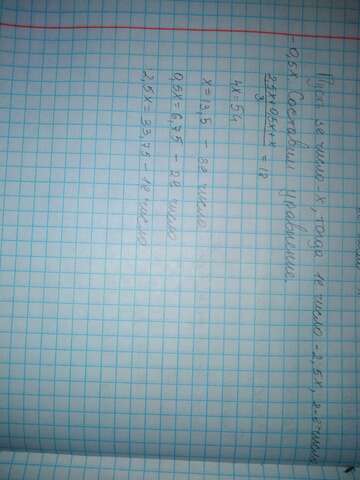 Пусть 3е число - x, тогда 1е число - 2,5x, 2-е число
- 0,5x Составим уравнение.
2,5x+0,5x+x / 3 = 18
4x=54
x=13,5 - 3е число
0,5x=6,75 - 2е число
2,5x=33,75 - 1е число